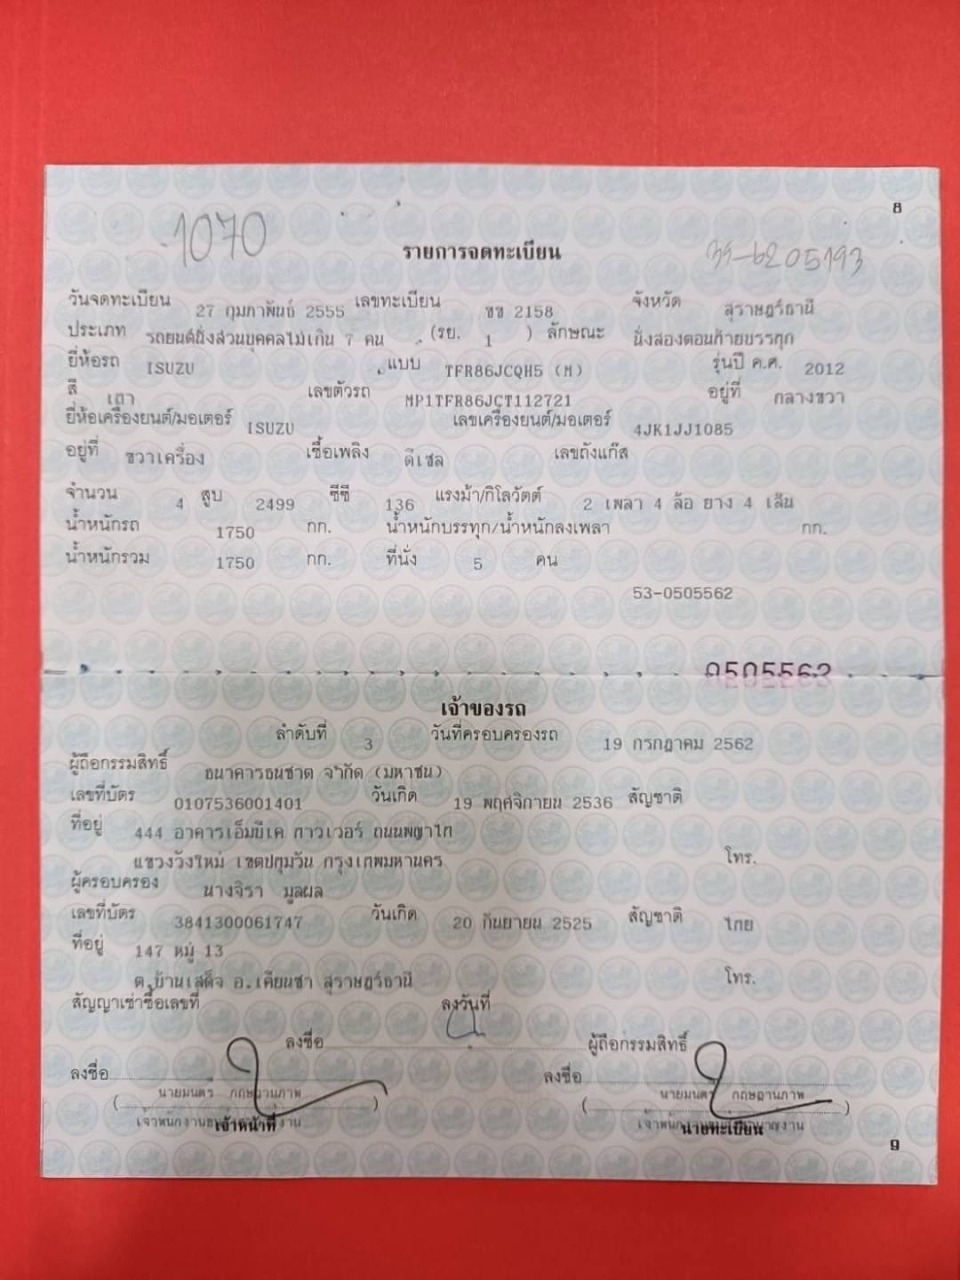 8
1070
รายการจดทะเบียน
วันจดทะเบียน 27 กุมภาพันธ์ 2555 เลขทะเบียน ขข 2158 จังหวัด สุราษฎร์ธานี
ประเภท รถยนต์นั่งส่วนบุคคลไม่เกิน 7 คน (รย. 1 ) ลักษณะ นั่งสองตอนท้ายบรรทุก
ยี่ห้อรถ ISUZU แบบ TFR86JCQH5 (M) รุ่นปี ค.ศ. 2012
สี เทา เลขตัวรถ MP1TFR86JCT112721 อยู่ที่ กลางขวา
ยี่ห้อเครื่องยนต์/มอเตอร์ ISUZU เลขเครื่องยนต์/มอเตอร์ 4JK1JJ1085
อยู่ที่ ขวาเครื่อง เชื้อเพลิง ดีเซล เลขถังแก๊ส
จำนวน 4 สูบ 2499 ซีซี 136 แรงม้า/กิโลวัตต์ 2 เพลา 4 ล้อ ยาง 4 เส้น
น้ำหนักรถ 1750 กก. น้ำหนักบรรทุก/น้ำหนักลงเพลา กก.
น้ำหนักรวม 1750 กก. ที่นั่ง 5 คน
53-0505562
0505562
เจ้าของรถ
ลำดับที่ 3 วันที่ครอบครองรถ 19 กรกฎาคม 2562
ผู้ถือกรรมสิทธิ์ ธนาคารธนชาต จำกัด (มหาชน)
เลขที่บัตร 0107536001401 วันเกิด 19 พฤศจิกายน 2536 สัญชาติ
ที่อยู่ 444 อาคารเอ็มบีเค ทาวเวอร์ ถนนพญาไท
แขวงวังใหม่ เขตปทุมวัน กรุงเทพมหานคร โทร.
ผู้ครอบครอง นางจิรา มูลผล
เลขที่บัตร 3841300061747 วันเกิด 20 กันยายน 2525 สัญชาติ ไทย
ที่อยู่ 147 หมู่ 13
ต.บ้านเสด็จ อ.เคียนซา สุราษฎร์ธานี โทร.
สัญญาเช่าซื้อเลขที่ ลงวันที่
ลงชื่อ ผู้ถือกรรมสิทธิ์
ลงชื่อ ลงชื่อ
( นายมนตรี กฤษฎานภาพ ) ( นายมนตรี กฤษฎานภาพ )
เจ้าหน้าที่ นายทะเบียน
9